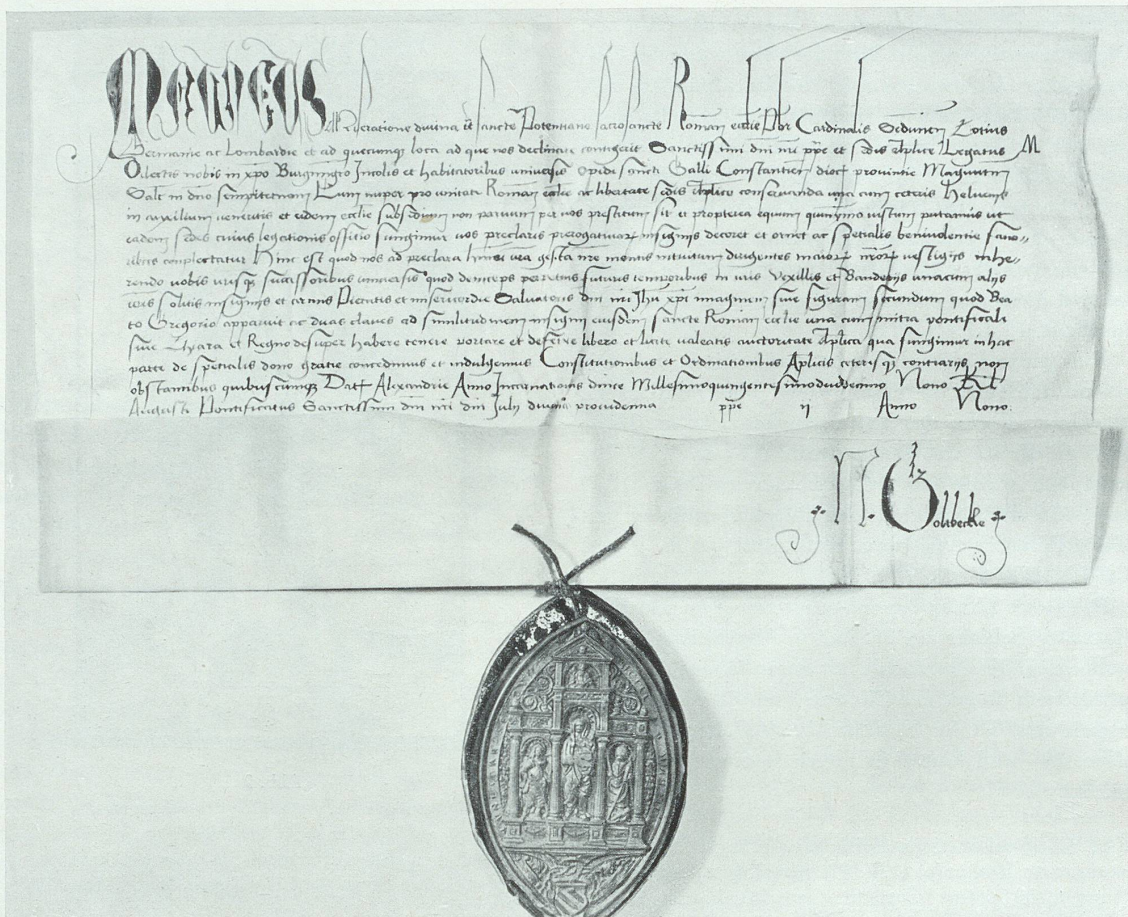 Matheus Miseratione divina tt Sancte Potentiane Sacrosancte Roman ecclie Pbr Cardinalis Sedunen Totius
Germanie ac Lombardie et ad quecunqꝫ loca ad que nos declinare contigerit Sanctissimi dni nri ppe et sedis Aplice Legatus M
Dilectis nobis in xpo Burgimgro Incolis et habitatoribus universis Opidi sancti Galli Constantien dioc provintie Maguntin
Salt in dno sempiternam Cum nuper pro unitate Roman ecclie ac libertate sedis Aplice conservanda una cum ceteris Helvetiis
in auxilium veneritis et eidem ecclie subsidium non parvum per vos prestitum sit et propterea equum quinymo iustum putamus ut
eadem sedes cuius legationis offitio fungimur vos preclaris prerogativarꝫ insigniis decoret et ornet ac spetialis benivolentie favo-
ribus complectatur Hinc est quod nos ad preclara huiusmodi vra gesta nre mentis intuitum dirigentes maiorꝫ nrorꝫ vestigiis inhe-
rendo vobis vrisqꝫ successoribus universis quod deinceps perpetuis futuris temporibus in vris Vexillis et Banderiis unacum aliis
vris solitis insigniis et armis Pietatis et misericordie Salvatoris dni nri Jhu xpi imaginem sive figuram secundum quod Bea
to Gregorio apparuit ac duas claves ad similitudinem insigni eiusdem sancte Roman ecclie una cum mitra pontificali
sive Thyara et Regno desuper habere tenere portare et deferre libere et licite valeatis auctoritate Aplica qua fungimur in hac
parte de spetialis dono gratie concedimus et indulgemus Constitutionibus et Ordinationibus Aplicis ceterisqꝫ contrariis non
obstantibus quibuscunqꝫ Datt Alexandrie Anno Incarnationis dnice Millesimoquingentesimoduodecimo Nono Kl
Augusti Pontificatus Sanctissimi dni nri dni Julii divina providentia ppe ii Anno Nono.